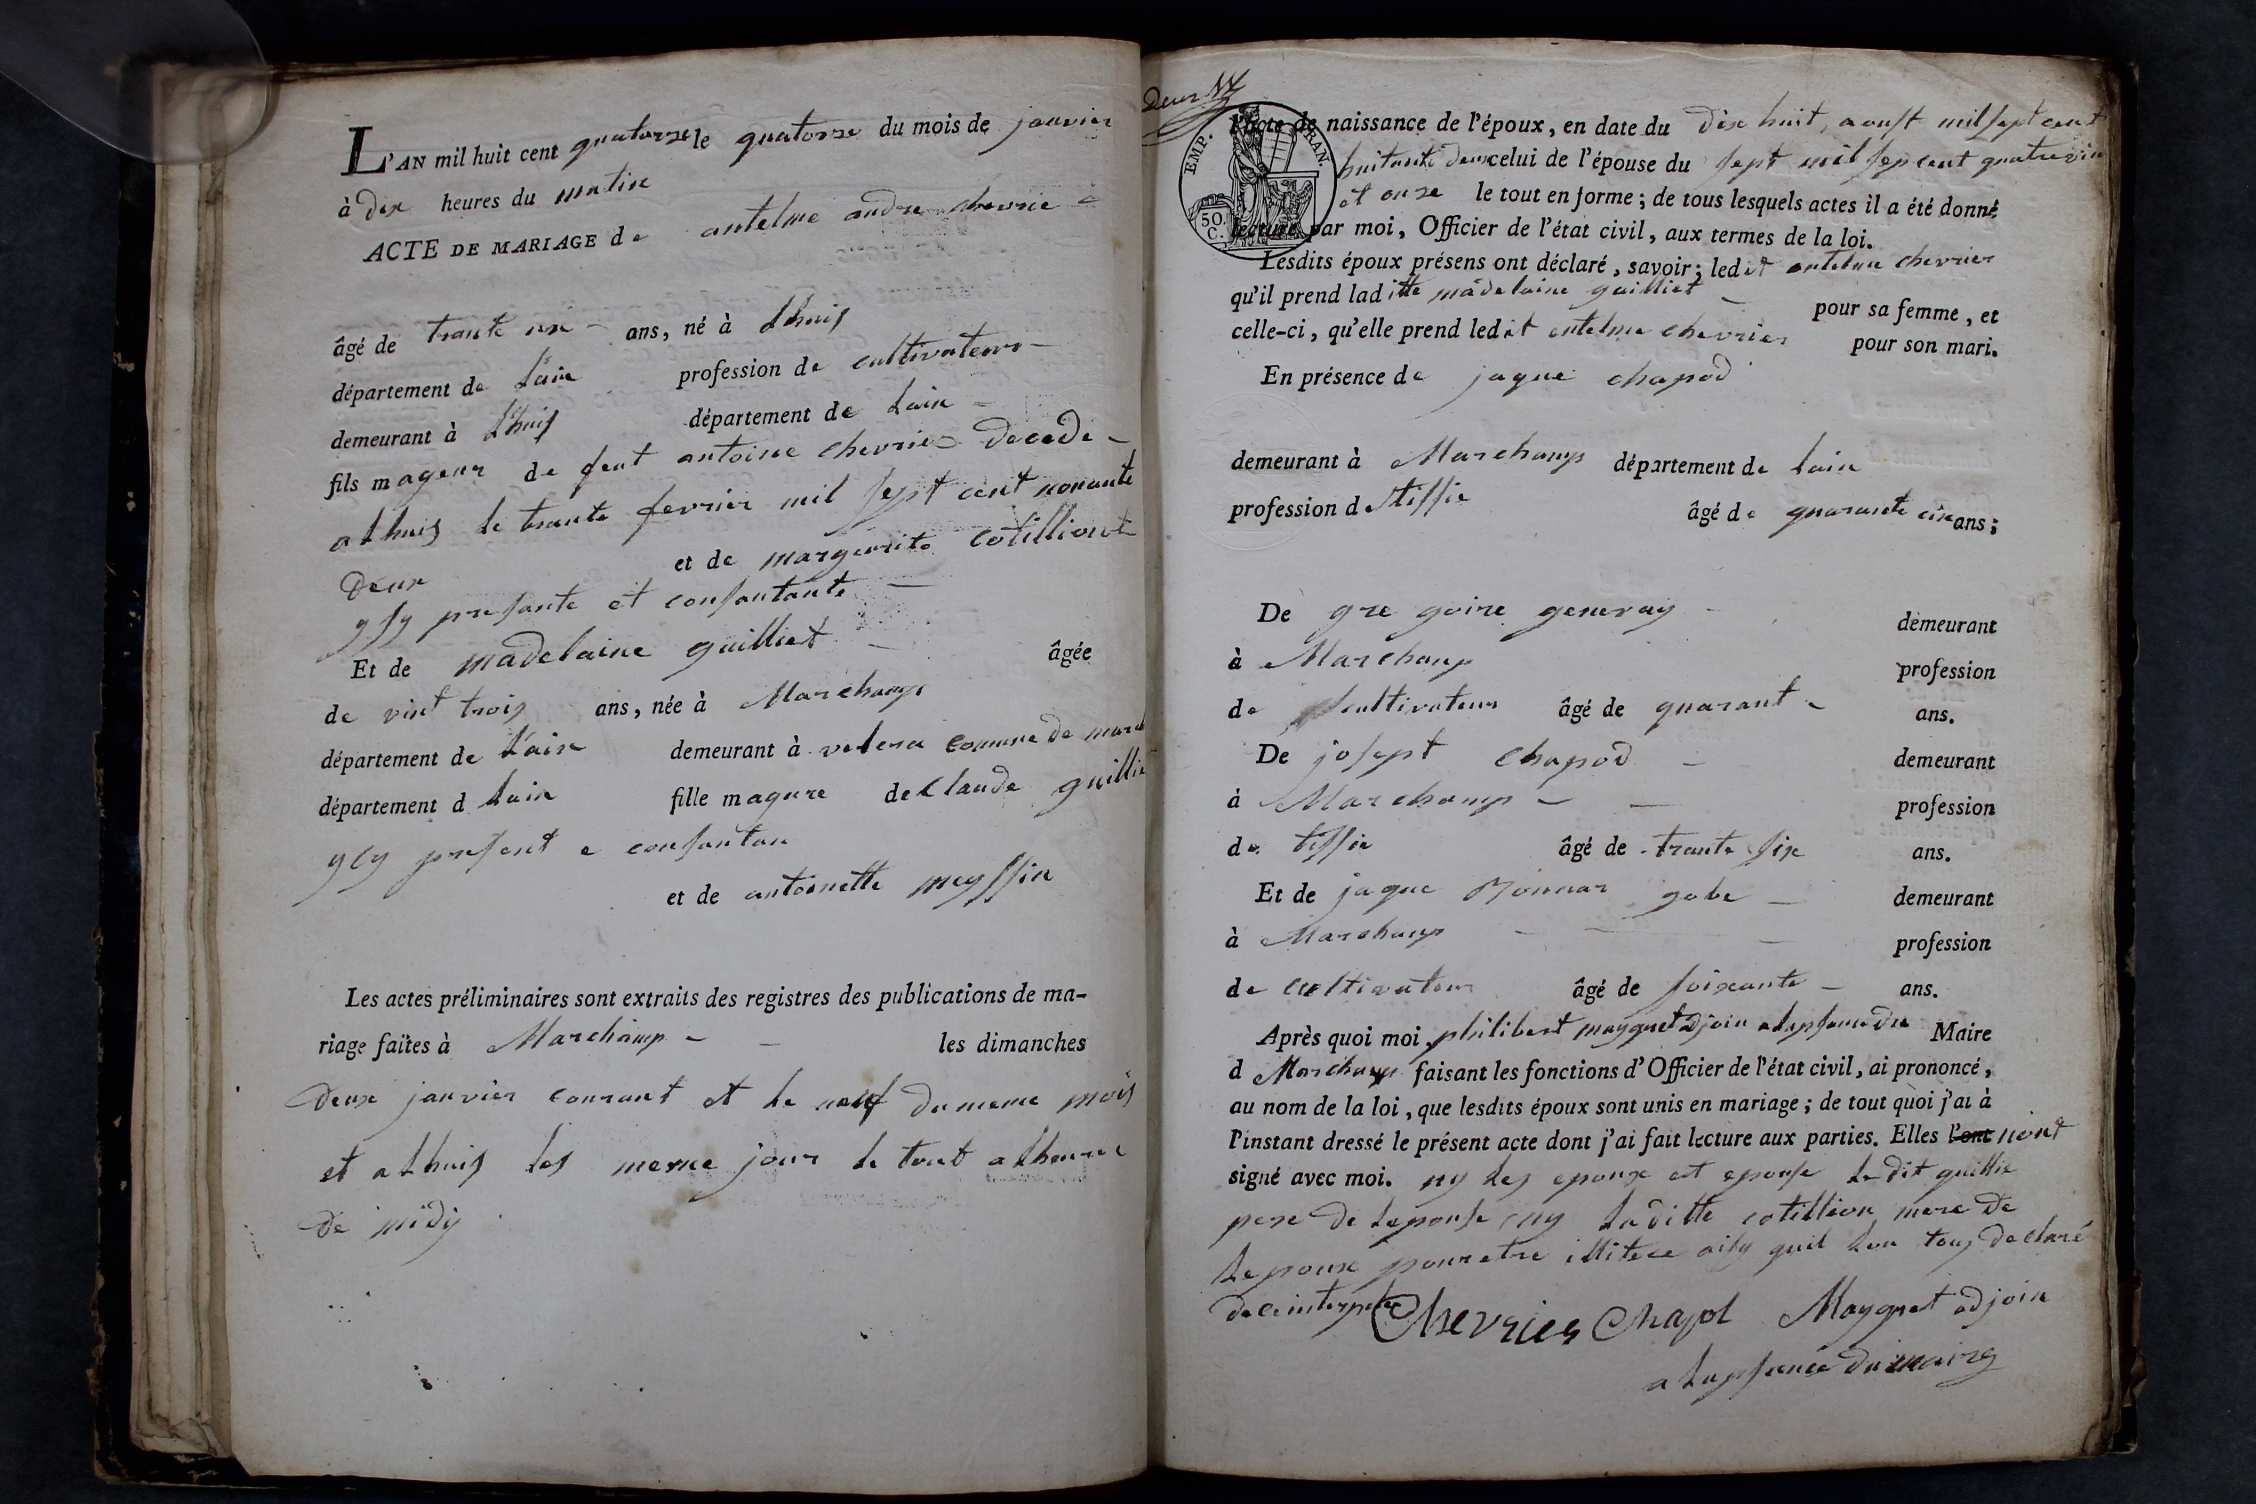 L'AN mil huit cent quatorze le quatorze du mois de janvier
à dix heures du matin
ACTE DE MARIAGE de antelme andre chevrie
âgé de trante un ans, né à Lhuis
département de Lain profession de cultivateur
demeurant à Lhuis département de Lain
fils mageur de feut antoine chevrie decede
a Lhuis le trante fevrier mil sept cent nonante
deux et de margurite cotilliont
ysy presante et consantante
Et de madelaine guilliet âgée
de vint trois ans, née à Marchamp
département de L'ain demeurant à velera comune de marc
département d Lain fille magure de Claude guillie
ycy present e consantan
et de antoinette meyssin
Les actes préliminaires sont extraits des registres des publications de ma-
riage faites à Marchamp les dimanches
deux janvier courant et le neuf du meme mois
et a Lhuis les meme jour le tout a Lheure
de midy
EMP. FRAN.
50. C.
l'acte de naissance de l'époux, en date du dix huit aoust mil sept cent
huitante deux celui de l'épouse du sept mil sep cent quatrevin
et onze le tout en forme; de tous lesquels actes il a été donné
lecture par moi, Officier de l'état civil, aux termes de la loi.
Lesdits époux présens ont déclaré, savoir; ledit antelme chevrier
qu'il prend laditte madelaine guilliet pour sa femme, et
celle-ci, qu'elle prend ledit antelme chevrier pour son mari.
En présence de jaque chapod
demeurant à Marchamp département de Lain
profession de tissie âgé de quarante cin ans;
De gre goire generay demeurant
à Marchamp profession
de cultivateur âgé de quarant ans.
De josept chapod demeurant
à Marchamp profession
de tissie âgé de trante six ans.
Et de jaque Monnar gobe demeurant
à Marchamp profession
de cultivateur âgé de soixante ans.
Après quoi moi philibert mayguet adjoin a lapsance du Maire
d Marchamp faisant les fonctions d'Officier de l'état civil, ai prononcé,
au nom de la loi, que lesdits époux sont unis en mariage; de tout quoi j'ai à
l'instant dressé le présent acte dont j'ai fait lecture aux parties. Elles l'ont nont
signé avec moi. ny les epoux et epouse le dit guillie
pere de lepouse ny laditte cotillion mere de
lepoux pour etre illitere aisy quil lon tous declaré
de ce interpele Chevrier Chapol Mayguet adjoin
a lapsence du maire